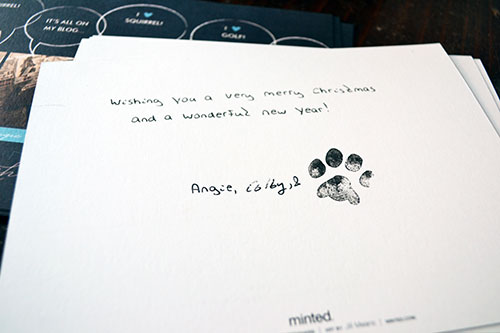 SQUIRREL!
IT'S ALL ON
MY BLOG...
I ♥
SQUIRREL!
I ♥
GOLF!
Wishing you a very merry christmas
and a wonderful new year!
Angie, Colby, &
minted.